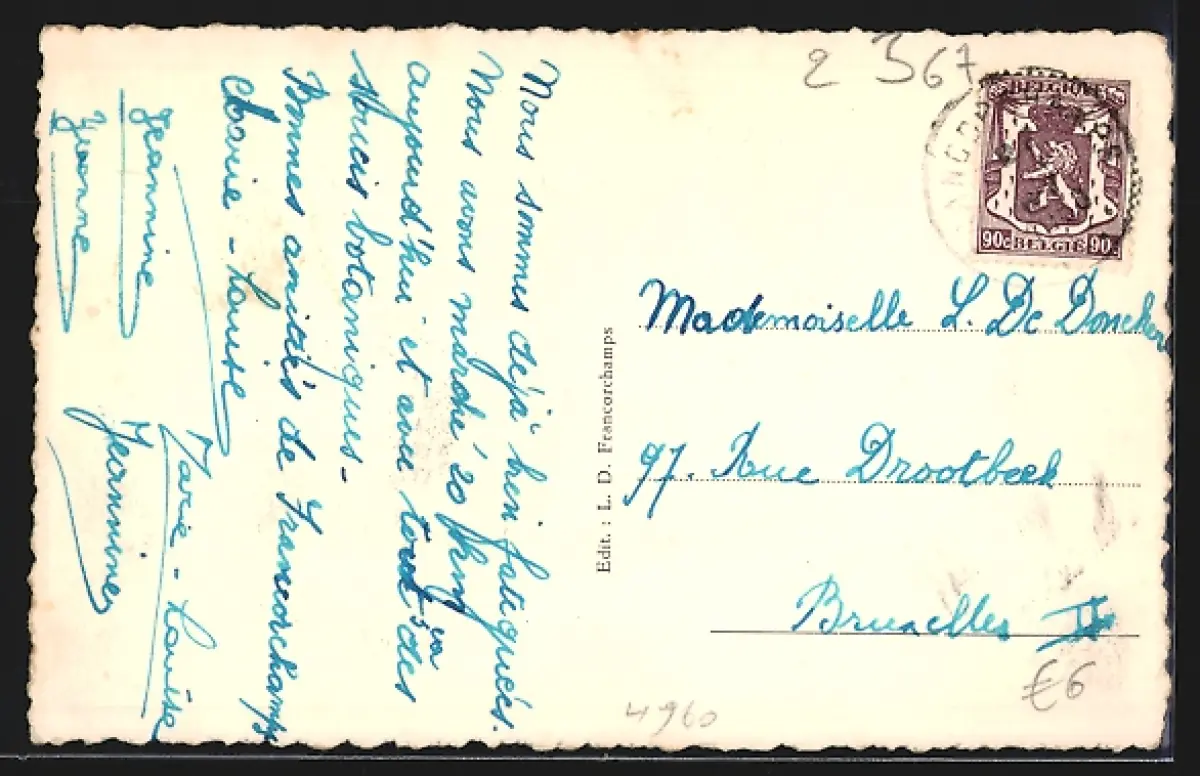 Nous sommes déjà bien fatiguées.
Nous avons marché 20 km
aujourd'hui et avec tout des
strucis botaniques -
Bonnes amitiés de Francorchamps
Marie - Louise
Jeannine
Yvonne
Marie - Louise
Jeannine
2 367
BELGIQUE
90c BELGIE 90c
Mademoiselle L. De Doncker
97. Rue Drootbeek
Bruxelles II
Edit. : L. D. Francorchamps
€6
4960